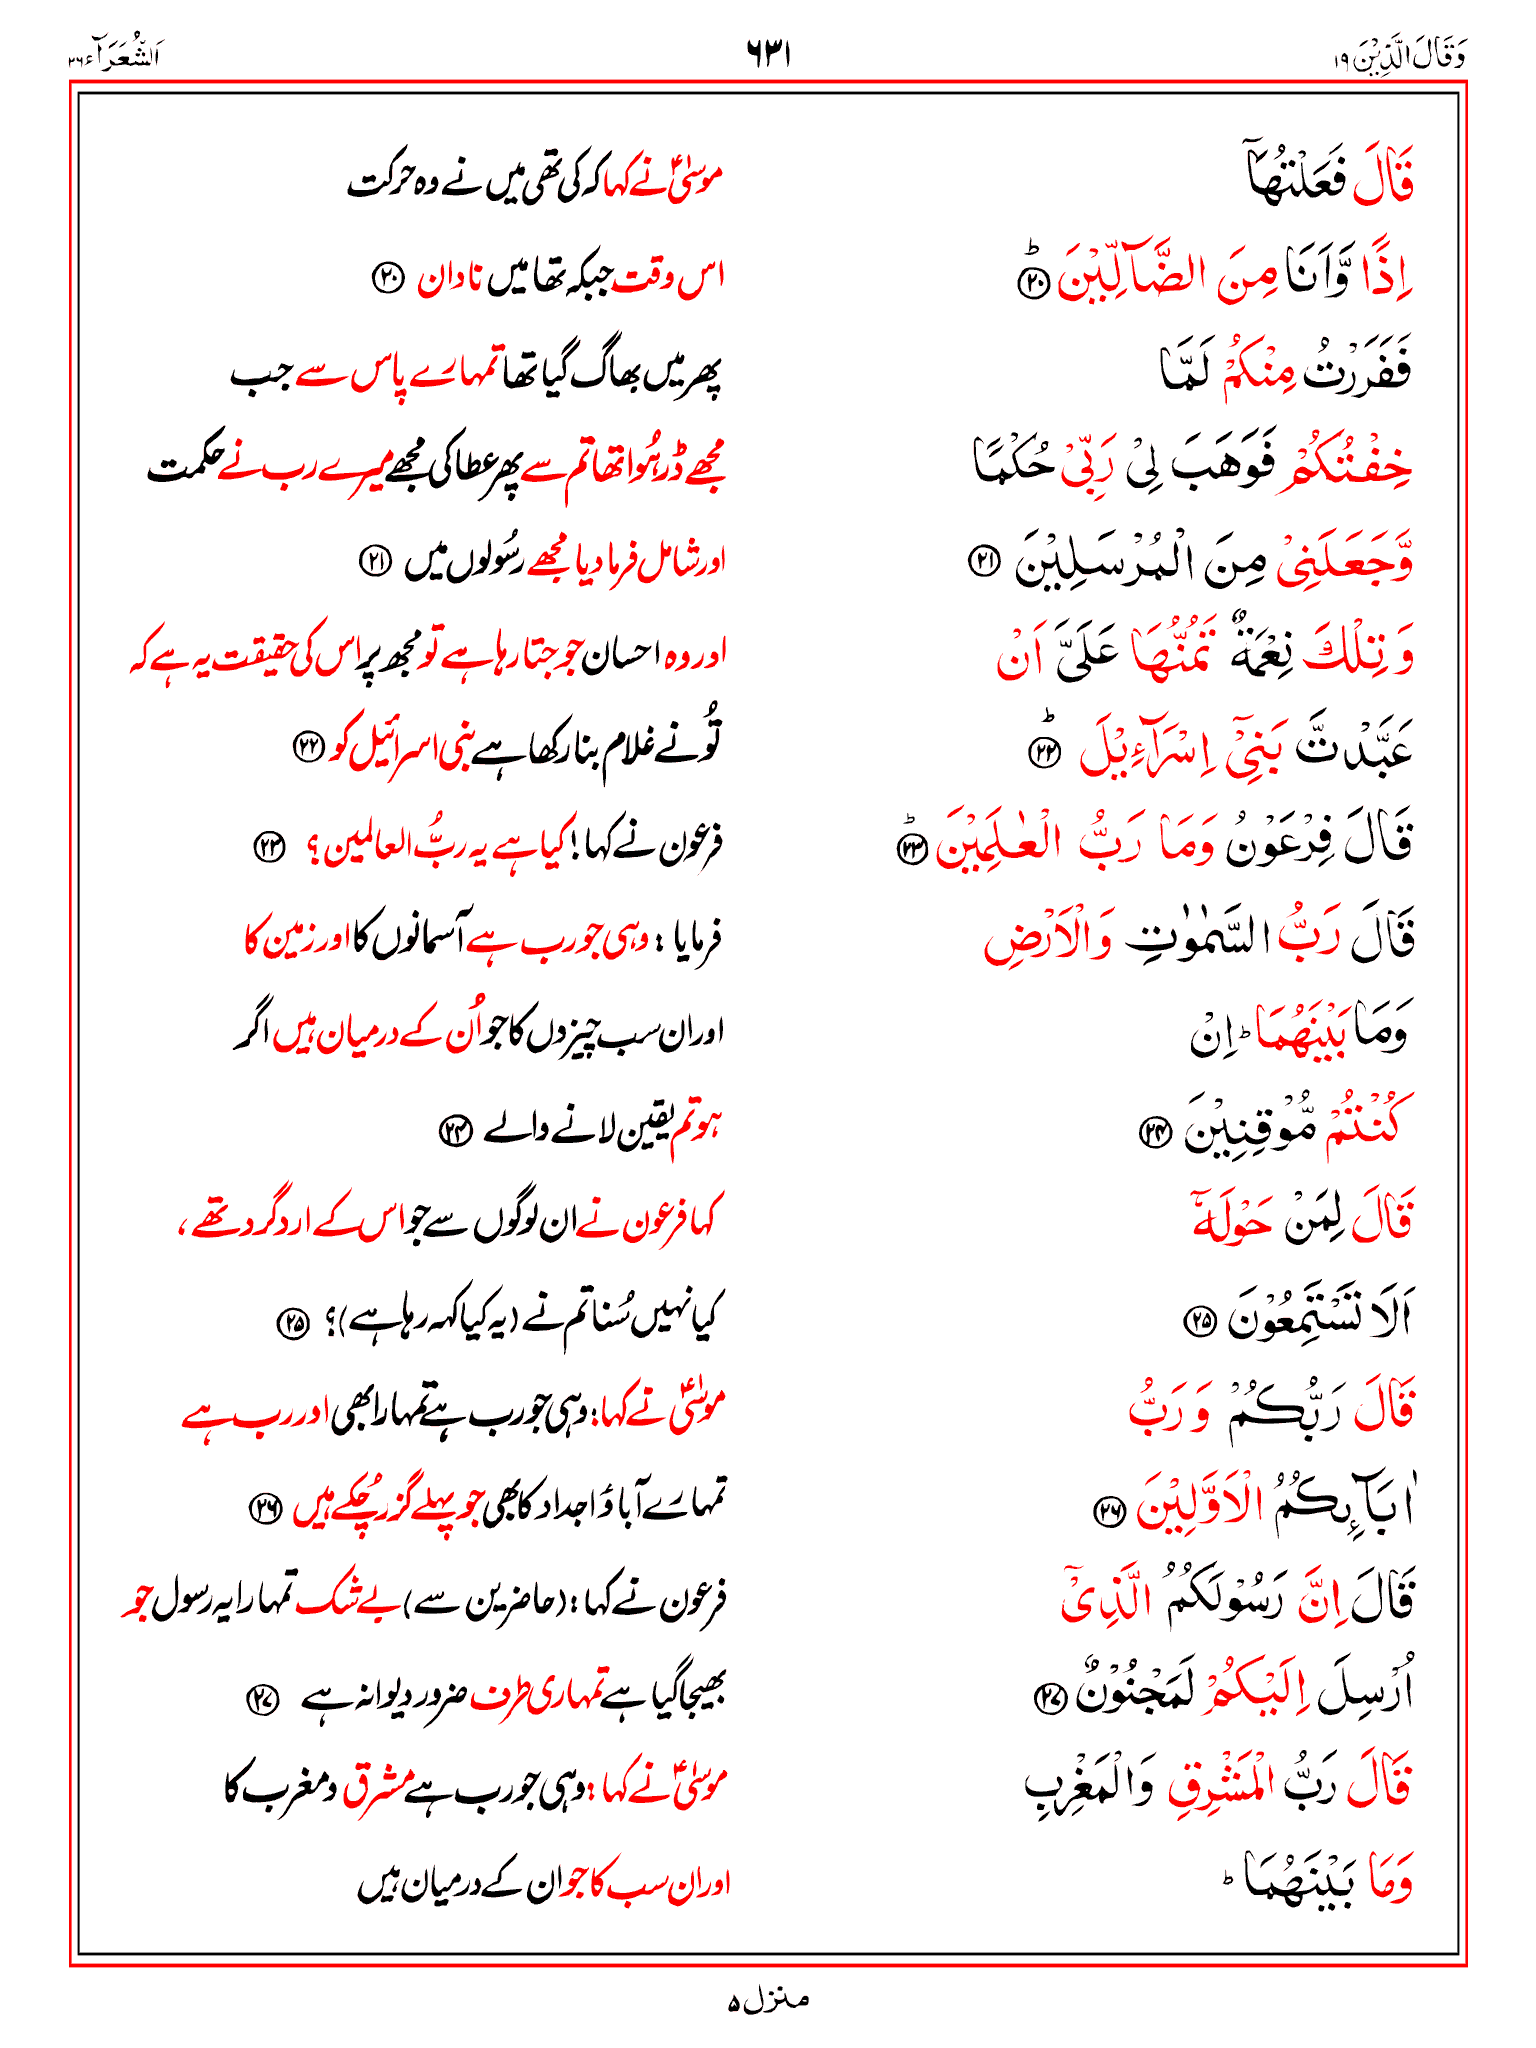 وَقَالَ الَّذِيْنَ ١٩ ٦٣١ اَلشُّعَرَآء ٢٦
قَالَ فَعَلْتُهَاۤ موسیٰؑ نے کہا کہ کی تھی میں نے وہ حرکت
اِذًا وَّاَنَا مِنَ الضَّآلِّيْنَ ؕ ﴿۲۰﴾ اس وقت جبکہ تھا میں نادان ﴿۲۰﴾
فَفَرَرْتُ مِنْكُمْ لَمَّا پھر میں بھاگ گیا تھا تمہارے پاس سے جب
خِفْتُكُمْ فَوَهَبَ لِيْ رَبِّيْ حُكْمًا مجھے ڈر ہُوا تھا تم سے پھر عطا کی مجھے میرے رب نے حکمت
وَّجَعَلَنِيْ مِنَ الْمُرْسَلِيْنَ ﴿۲۱﴾ اور شامل فرما دیا مجھے رسُولوں میں ﴿۲۱﴾
وَ تِلْكَ نِعْمَةٌ تَمُنُّهَا عَلَيَّ اَنْ اور وہ احسان جو جتا رہا ہے تو مجھ پر اس کی حقیقت یہ ہے کہ
عَبَّدْتَّ بَنِيْۤ اِسْرَآءِيْلَ ؕ ﴿۲۲﴾ تُو نے غلام بنا رکھا ہے بنی اسرائیل کو ﴿۲۲﴾
قَالَ فِرْعَوْنُ وَمَا رَبُّ الْعٰلَمِيْنَ ؕ ﴿۲۳﴾ فرعون نے کہا! کیا ہے یہ ربُّ العالمین؟ ﴿۲۳﴾
قَالَ رَبُّ السَّمٰوٰتِ وَالْاَرْضِ فرمایا: وہی جو رب ہے آسمانوں کا اور زمین کا
وَمَا بَيْنَهُمَا ؕ اِنْ اور ان سب چیزوں کا جو اُن کے درمیان ہیں اگر
كُنْتُمْ مُّوْقِنِيْنَ ﴿۲۴﴾ ہو تم یقین لانے والے ﴿۲۴﴾
قَالَ لِمَنْ حَوْلَهٗۤ کہا فرعون نے ان لوگوں سے جو اس کے ارد گرد تھے،
اَلَا تَسْتَمِعُوْنَ ﴿۲۵﴾ کیا نہیں سُنا تم نے (یہ کیا کہہ رہا ہے)؟ ﴿۲۵﴾
قَالَ رَبُّكُمْ وَ رَبُّ موسیٰؑ نے کہا: وہی جو رب ہے تمہارا بھی اور رب ہے
اٰبَآئِكُمُ الْاَوَّلِيْنَ ﴿۲۶﴾ تمہارے آباؤ اجداد کا بھی جو پہلے گزر چُکے ہیں ﴿۲۶﴾
قَالَ اِنَّ رَسُوْلَكُمُ الَّذِيْۤ فرعون نے کہا: (حاضرین سے) بے شک تمہارا یہ رسول جو
اُرْسِلَ اِلَيْكُمْ لَمَجْنُوْنٌ ﴿۲۷﴾ بھیجا گیا ہے تمہاری طرف ضرور دیوانہ ہے ﴿۲۷﴾
قَالَ رَبُّ الْمَشْرِقِ وَالْمَغْرِبِ موسیٰؑ نے کہا: وہی جو رب ہے مشرق و مغرب کا
وَمَا بَيْنَهُمَا ؕ اور ان سب کا جو ان کے درمیان ہیں
منزل ۵